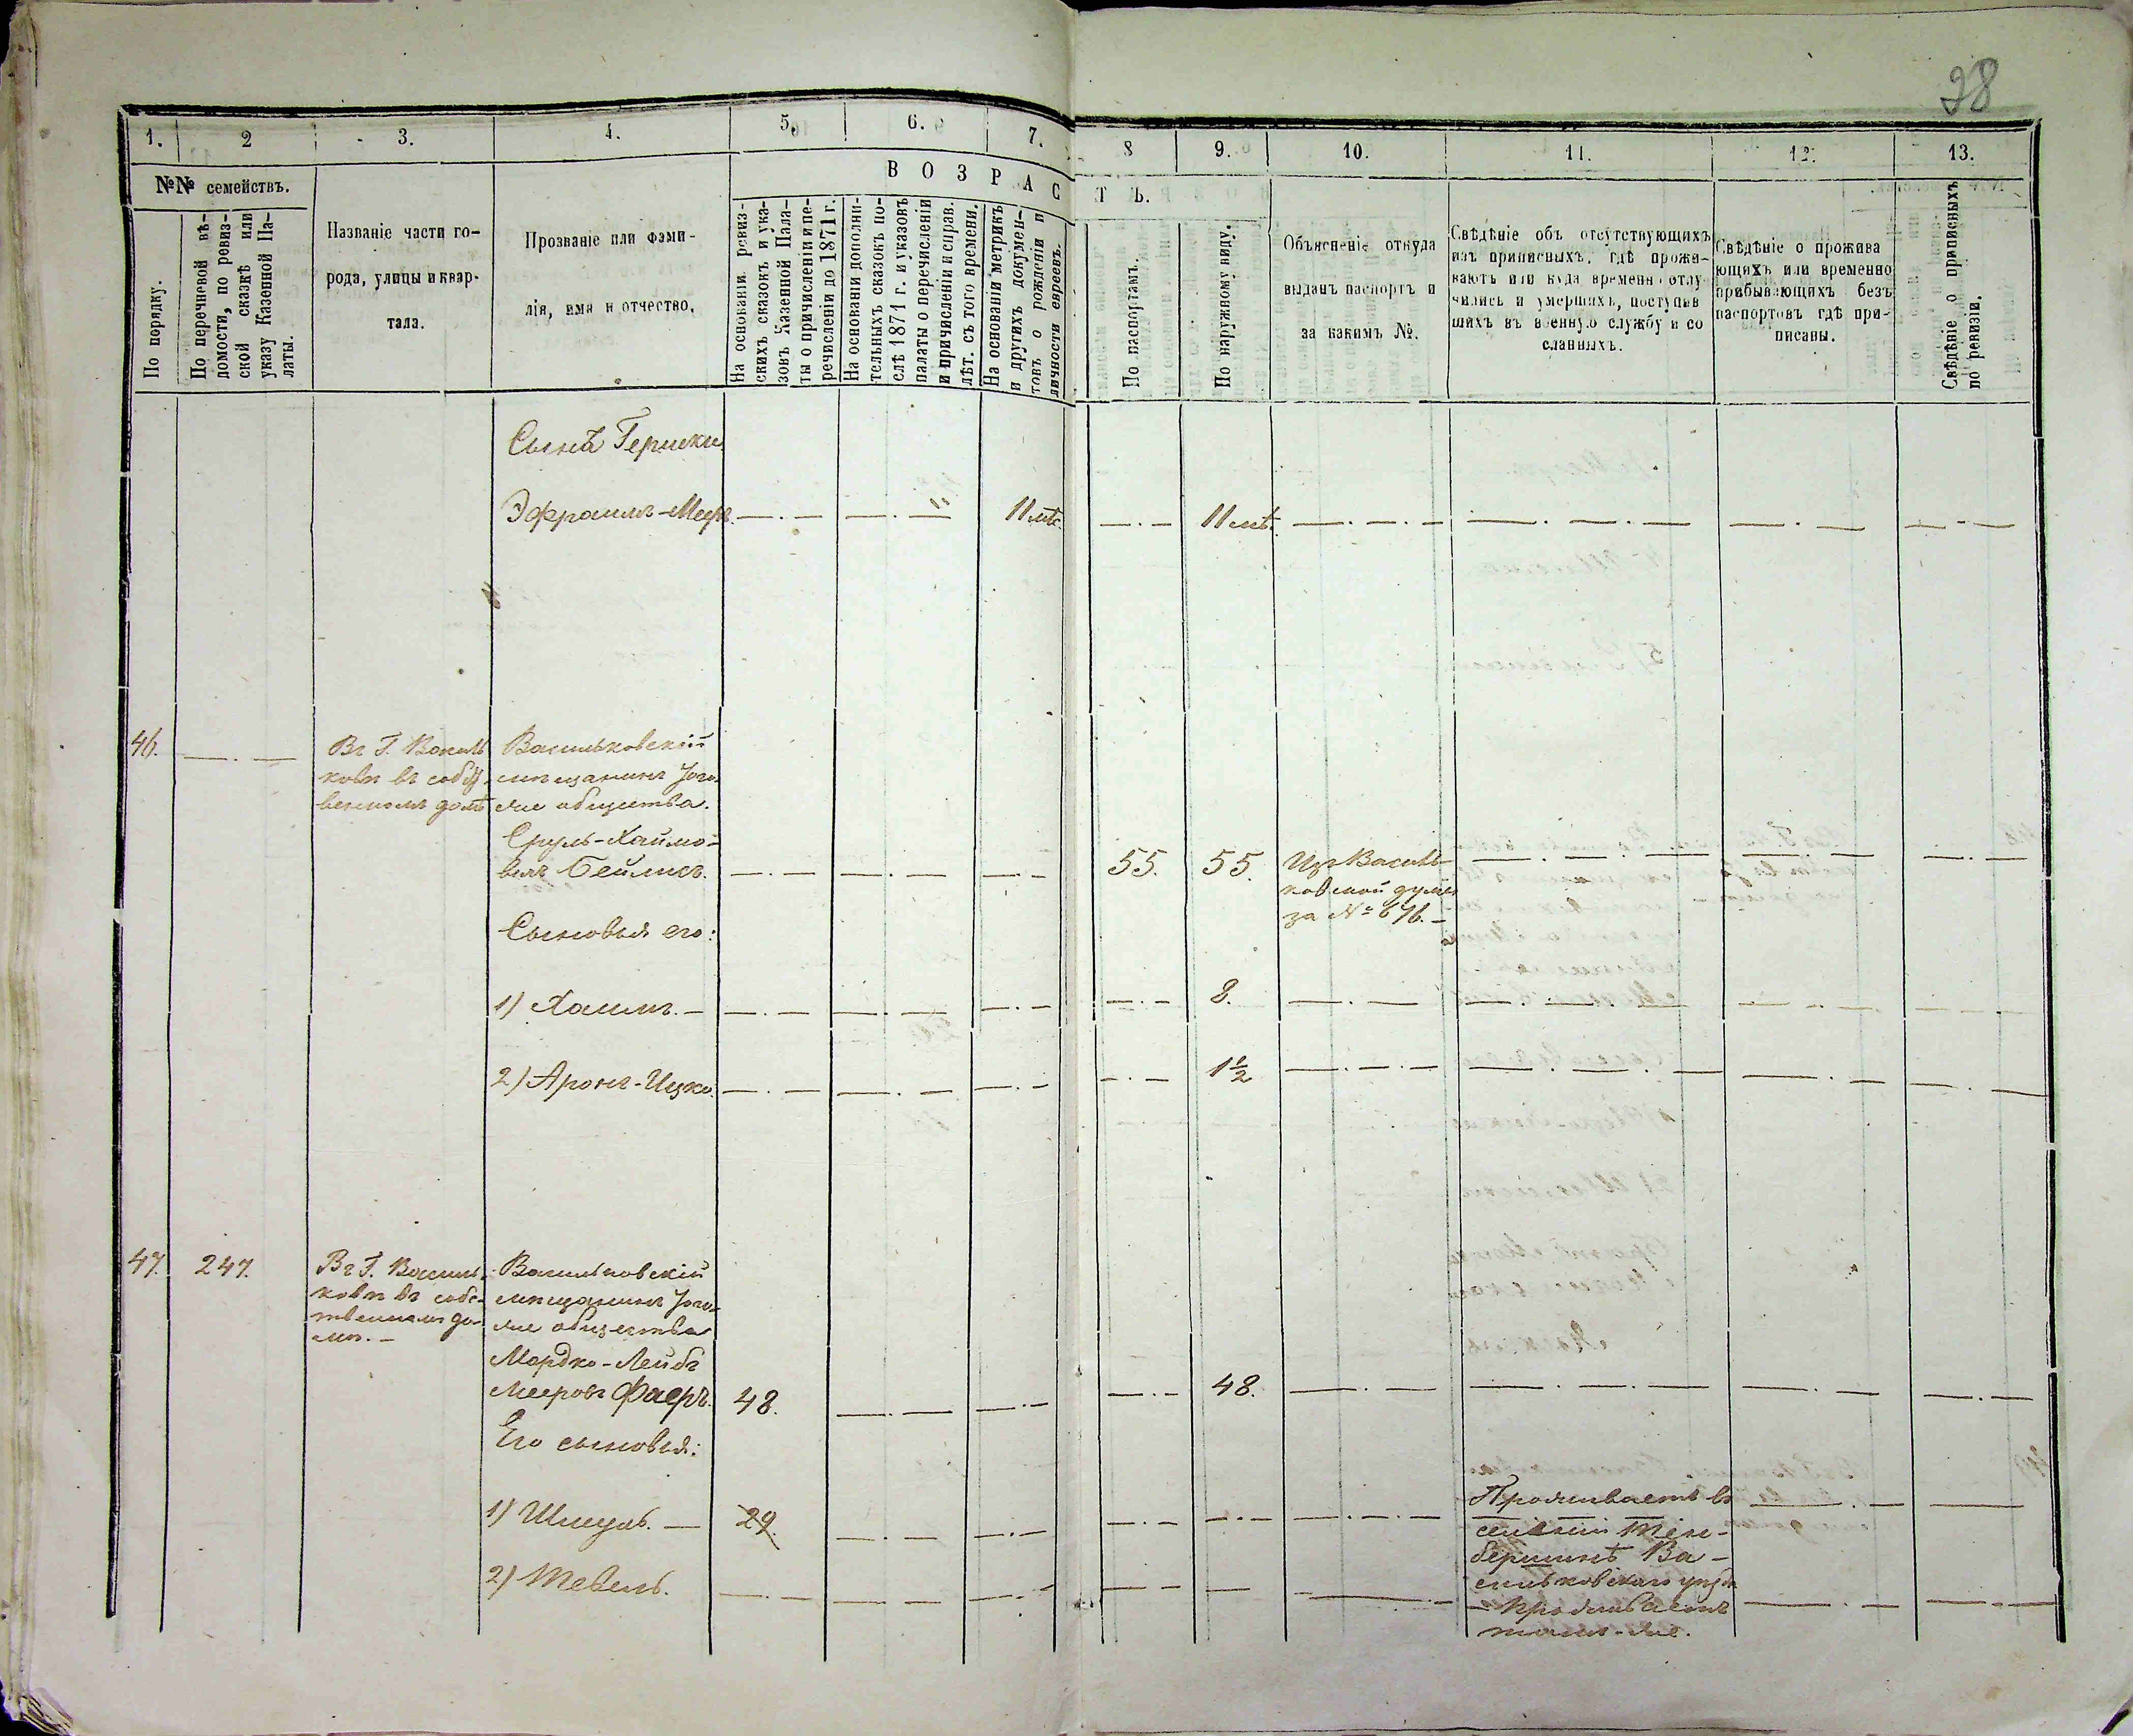 28
1. 2 3. 4. 5. 6. 7. 8 9. 10. 11. 12. 13.
№№ семействъ.
По порядку.
По перечневой вѣ-
домости, по ревиз-
ской сказкѣ или
указу Казенной Па-
латы.
Названіе части го-
рода, улицы и квар-
тала.
Прозваніе или фами-
лія, имя и отчество.
ВОЗРАСТЪ.
На основаніи ревиз-
скихъ сказокъ и ука-
зовъ Казенной Пала-
ты о причисленіи и пе-
речисленіи до 1871 г.
На основаніи дополни-
тельныхъ сказокъ по-
слѣ 1871 г. и указовъ
палаты о перечисленіи
и причисленіи и справ.
лѣт. съ того времени.
На основаніи метрикъ
и другихъ докумен-
товъ о рожденіи и
личности евреевъ.
По паспортамъ.
По наружному виду.
Объясненіе откуда
выданъ паспортъ и
за какимъ №.
Свѣдѣніе объ отсутствующихъ
изъ приписныхъ, гдѣ прожи-
ваютъ или куда временно отлу-
чились и умершихъ, поступив
шихъ въ военную службу и со
сланныхъ.
Свѣдѣніе о прожива
ющихъ или временно
прибывающихъ безъ
паспортовъ гдѣ при-
писаны.
Свѣдѣніе о приписныхъ
по ревизіи.
Сынъ Гершки
Эфраимъ-Меръ. —.— —.— 11 лѣт. —.— 11 лѣт. —.—.— —.—.— —.— —.—
46. —.— Въ Г. Василь
ковѣ въ собст
венномъ домѣ
Васильковскій
мѣщанинъ того-
же общества.
Сруль-Хаймо-
вичъ Бейлисъ. —.— —.— —.— 55. 55. Изъ Василь-
ковской думы
за № 676.—
Сыновья его:
1) Хаимъ. — —.— —.— —.— —.— 8. —.— —.—.— —.— —.—
2) Аронъ-Ицко. —.— —.— —.— —.— 1½ —.—.— —.—.— —.— —.—
47. 247. Въ Г. Василь-
ковѣ въ собс-
твенномъ до-
мѣ. —
Васильковскій
мѣщанинъ того-
же общества
Мордко-Лейбъ
Мееровъ Фаеръ. 48. —.— —.— —.— 48. —.— —.—.— —.— —.—
Его сыновья:
1) Шмуль. — 29. —.— —.— —.— —.— —.—.— Проживаетъ въ
селеніи
Васильковскаго уѣзда
2) Тевель. —.— —.— —.— —.— — —.— Проживаетъ
тамъ-же.